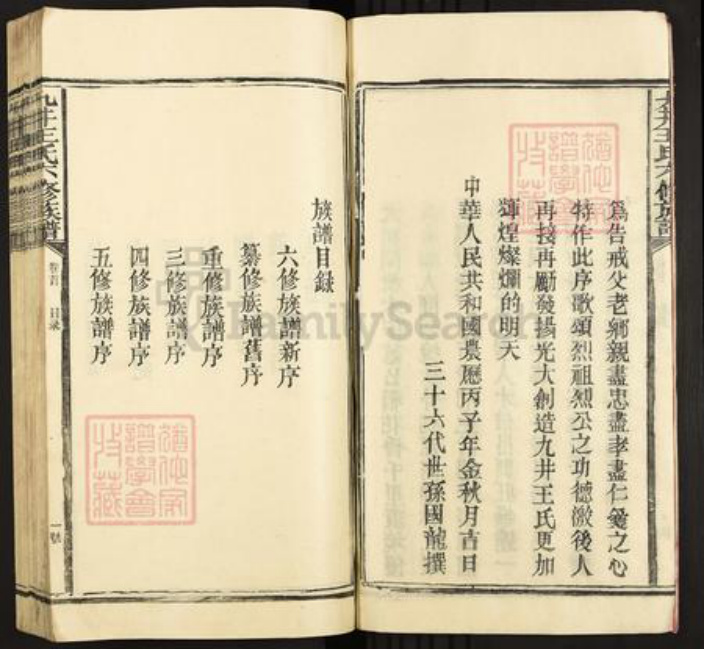 九井王氏六修族譜
為告戒父老鄉親盡忠盡孝盡仁愛之心
特作此序歌頌烈祖烈公之功德激後人
再接再勵發揚光大創造九井王氏更加
輝煌燦爛的明天
中華人民共和國農歷丙子年金秋月吉日
三十六代世孫國龍撰
族譜目録
六修族譜新序
纂修族譜舊序
重修族譜序
三修族譜序
四修族譜序
五修族譜序
九井王氏六修族譜
卷首
目录
一號
FamilySearch